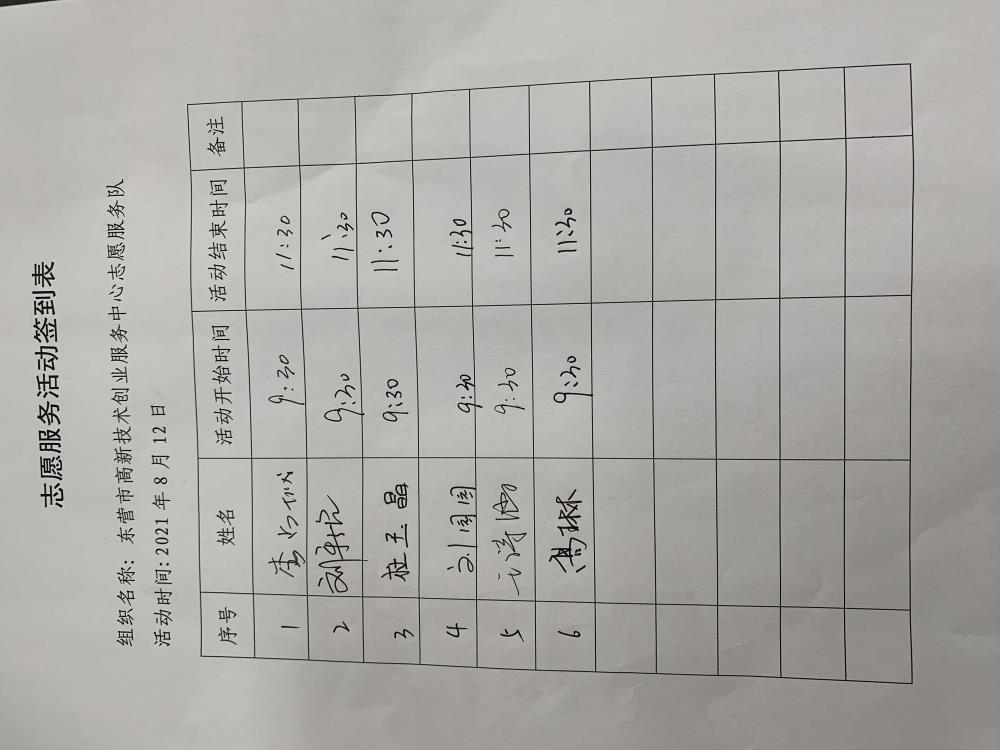 志愿服务活动签到表
组织名称: 东营市高新技术创业服务中心志愿服务队
活动时间: 2021 年 8 月 12 日
序号 姓名 活动开始时间 活动结束时间 备注
1 9:30 11:30
2 9:30 11:30
3 杜玉晶 9:30 11:30
4 刘圆圆 9:30 11:30
5 9:30 11:30
6 9:30 11:30